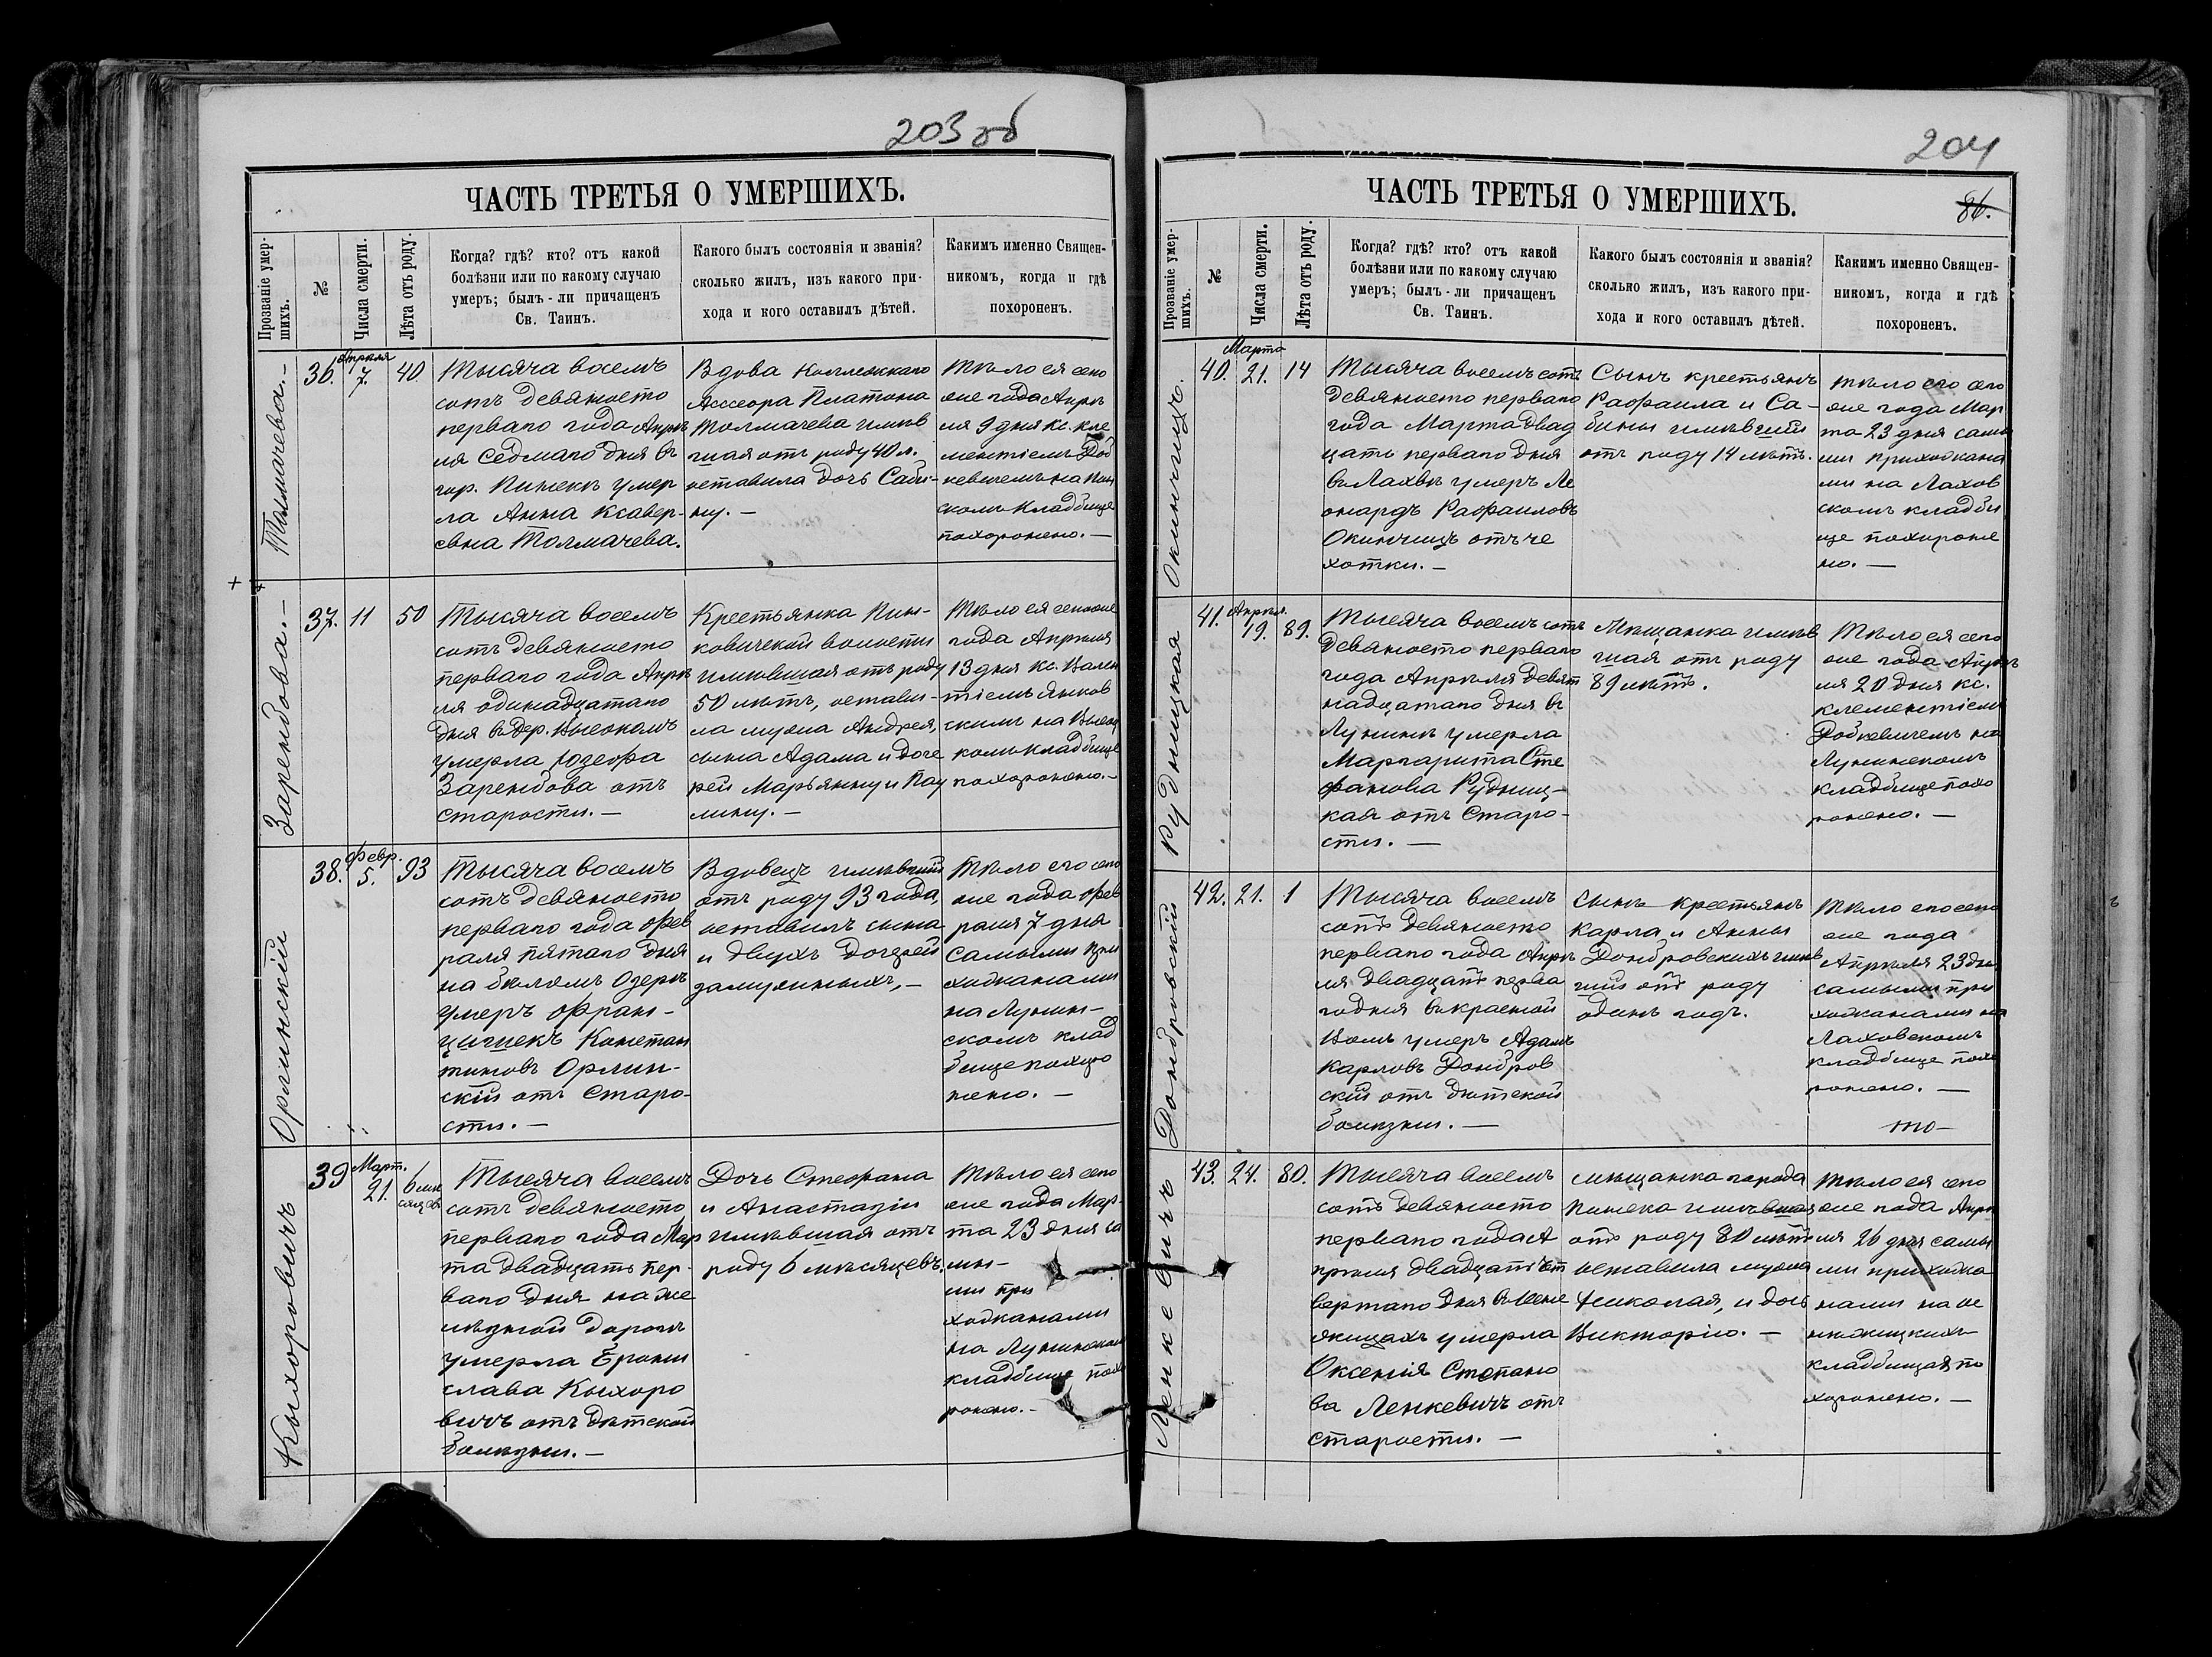 203 об
ЧАСТЬ ТРЕТЬЯ О УМЕРШИХЪ.
Прозваніе умер-
шихъ.
№
Числа смерти.
Лѣта отъ роду.
Когда? гдѣ? кто? отъ какой
болѣзни или по какому случаю
умеръ; былъ-ли причащенъ
Св. Таинъ.
Какого былъ состоянія и званія?
сколько жилъ, изъ какого при-
хода и кого оставилъ дѣтей.
Какимъ именно Священ-
никомъ, когда и гдѣ
похороненъ.
Толмачева.-
36.
Апрѣля
7.
40.
Тысяча восемъ
сотъ девяносто
перваго года Апрѣ
ля седмаго дня въ
гор. Пинскѣ умер
ла Анна Ксавер-
евна Толмачева.
Вдова Коллежскаго
Ассесора Платона
Толмачева имѣв
шая отъ роду 40 л.
оставила дочь Саби-
ну.-
Тѣло ея сего
же года Апрѣ
ля 9 дня Кс. Кле
ментіемъ Дод
кевичемъ на Пин
скомъ кладбище
похоронено.-
Зарембова.-
37.
11
50
Тысяча восемъ
сотъ девяносто
перваго года Апрѣ
ля одинадцатаго
дня въ дер. Высокомъ
умерла Юзефа
Зарембова отъ
старости.-
Крестьянка Пин-
ковичской волости
имѣвшая отъ роду
50 лѣтъ, остави-
ла мужа Андрея,
сына Адама и доче
рей Марьянну и Пау
лину.-
Тѣло ея сего же
года Апрѣля
13 дня Кс. Вален
тіемъ Янков
скимъ на Высоц
комъ кладбище
похоронено.-
Орлинскій
38.
Февр.
5.
93
Тысяча восемъ
сотъ девяносто
перваго года Фев
раля пятаго дня
на бѣломъ Озерѣ
умеръ Фран-
цишекъ Констан
тиновъ Орлин-
скій отъ старо-
сти.-
Вдовецъ имѣвшій
отъ роду 93 года,
оставилъ сына
и двухъ дочерей
замужныхъ,-
Тѣло его сего
же года Фев
раля 7 дня
самыми при
хожанами
на Лунин-
скомъ клад
бище похоро
нено.-
Кыхоровичъ
39
Март.
21.
6 мѣ
сяцевъ
Тысяча восемъ
сотъ девяносто
перваго года Мар
та двадцать пер-
ваго дня на же
лѣзной дорогѣ
умерла Брони
слава Кыхоро
вичъ отъ дѣтской
болѣзни.-
Дочь Стефана
и Анастазіи
имѣвшая отъ
роду 6 мѣсяцевъ.
Тѣло ея сего
же года Мар-
та 23 дня са
мы-
ми при
хожанами
на Лунинском
кладбище похо
ронено.-
204
86.
ЧАСТЬ ТРЕТЬЯ О УМЕРШИХЪ.
Прозваніе умер-
шихъ.
№
Числа смерти.
Лѣта отъ роду.
Когда? гдѣ? кто? отъ какой
болѣзни или по какому случаю
умеръ; былъ-ли причащенъ
Св. Таинъ.
Какого былъ состоянія и званія?
сколько жилъ, изъ какого при-
хода и кого оставилъ дѣтей.
Какимъ именно Священ-
никомъ, когда и гдѣ
похороненъ.
Окинчицъ.
40.
Марта
21.
14
Тысяча восемъ сотъ
девяносто перваго
года Марта двад
цать перваго дня
въ Лахвѣ умеръ Ле
онардъ Рафаиловъ
Окинчицъ отъ че
хотки.-
Сынъ крестьянъ
Рафаила и Са-
бины имѣвшій
отъ роду 14 лѣтъ.
Тѣло его сего
же года Мар
та 23 дня самы
ми прихожана
ми на Лахов
скомъ кладби
ще похороне
но.-
Рудницкая
41.
Апрѣля.
19.
89.
Тысяча восемъ сотъ
девяносто перваго
года Апрѣля девят
надцатаго дня въ
Лунинѣ умерла
Маргарита Сте
фанова Рудниц-
кая отъ старо-
сти.-
Мѣщанка имѣв
шая отъ роду
89 лѣтъ.
Тѣло ея сего
же года Апрѣ
ля 20 дня Кс.
Клементіемъ
Додкевичемъ на
Лунинскомъ
кладбище похо
ронено.-
Домбровскій
42.
21.
1
Тысяча восемъ
сотъ девяносто
перваго года Апрѣ
ля двадцать перва
го дня въ красной
Воли умеръ Адамъ
Карловъ Домбров
скій отъ дѣтской
болѣзни.-
Сынъ крестьянъ
Карла и Анны
Домбровскихъ имѣв
шій отъ роду
одинъ годъ.
Тѣло его сего
же года
Апрѣля 23 дня
самыми при
хожанами на
Лаховскомъ
кладбище похо
ронено.-
то-
Ленкевичъ
43.
24.
80.
Тысяча восемъ
сотъ девяносто
перваго года А
прѣля двадцать чет
вертаго дня въ
умерла
Оксенія Степано
ва Ленкевичъ отъ
старости.-
Мѣщанка города
Пинска имѣвшая
отъ роду 80 лѣтъ
оставила мужа
Николая, и дочь
Викторію.-
Тѣло ея сего
же года Апрѣ
ля 26 дня самы
ми прихожа
нами на
кладбищахъ по
хоронено.-